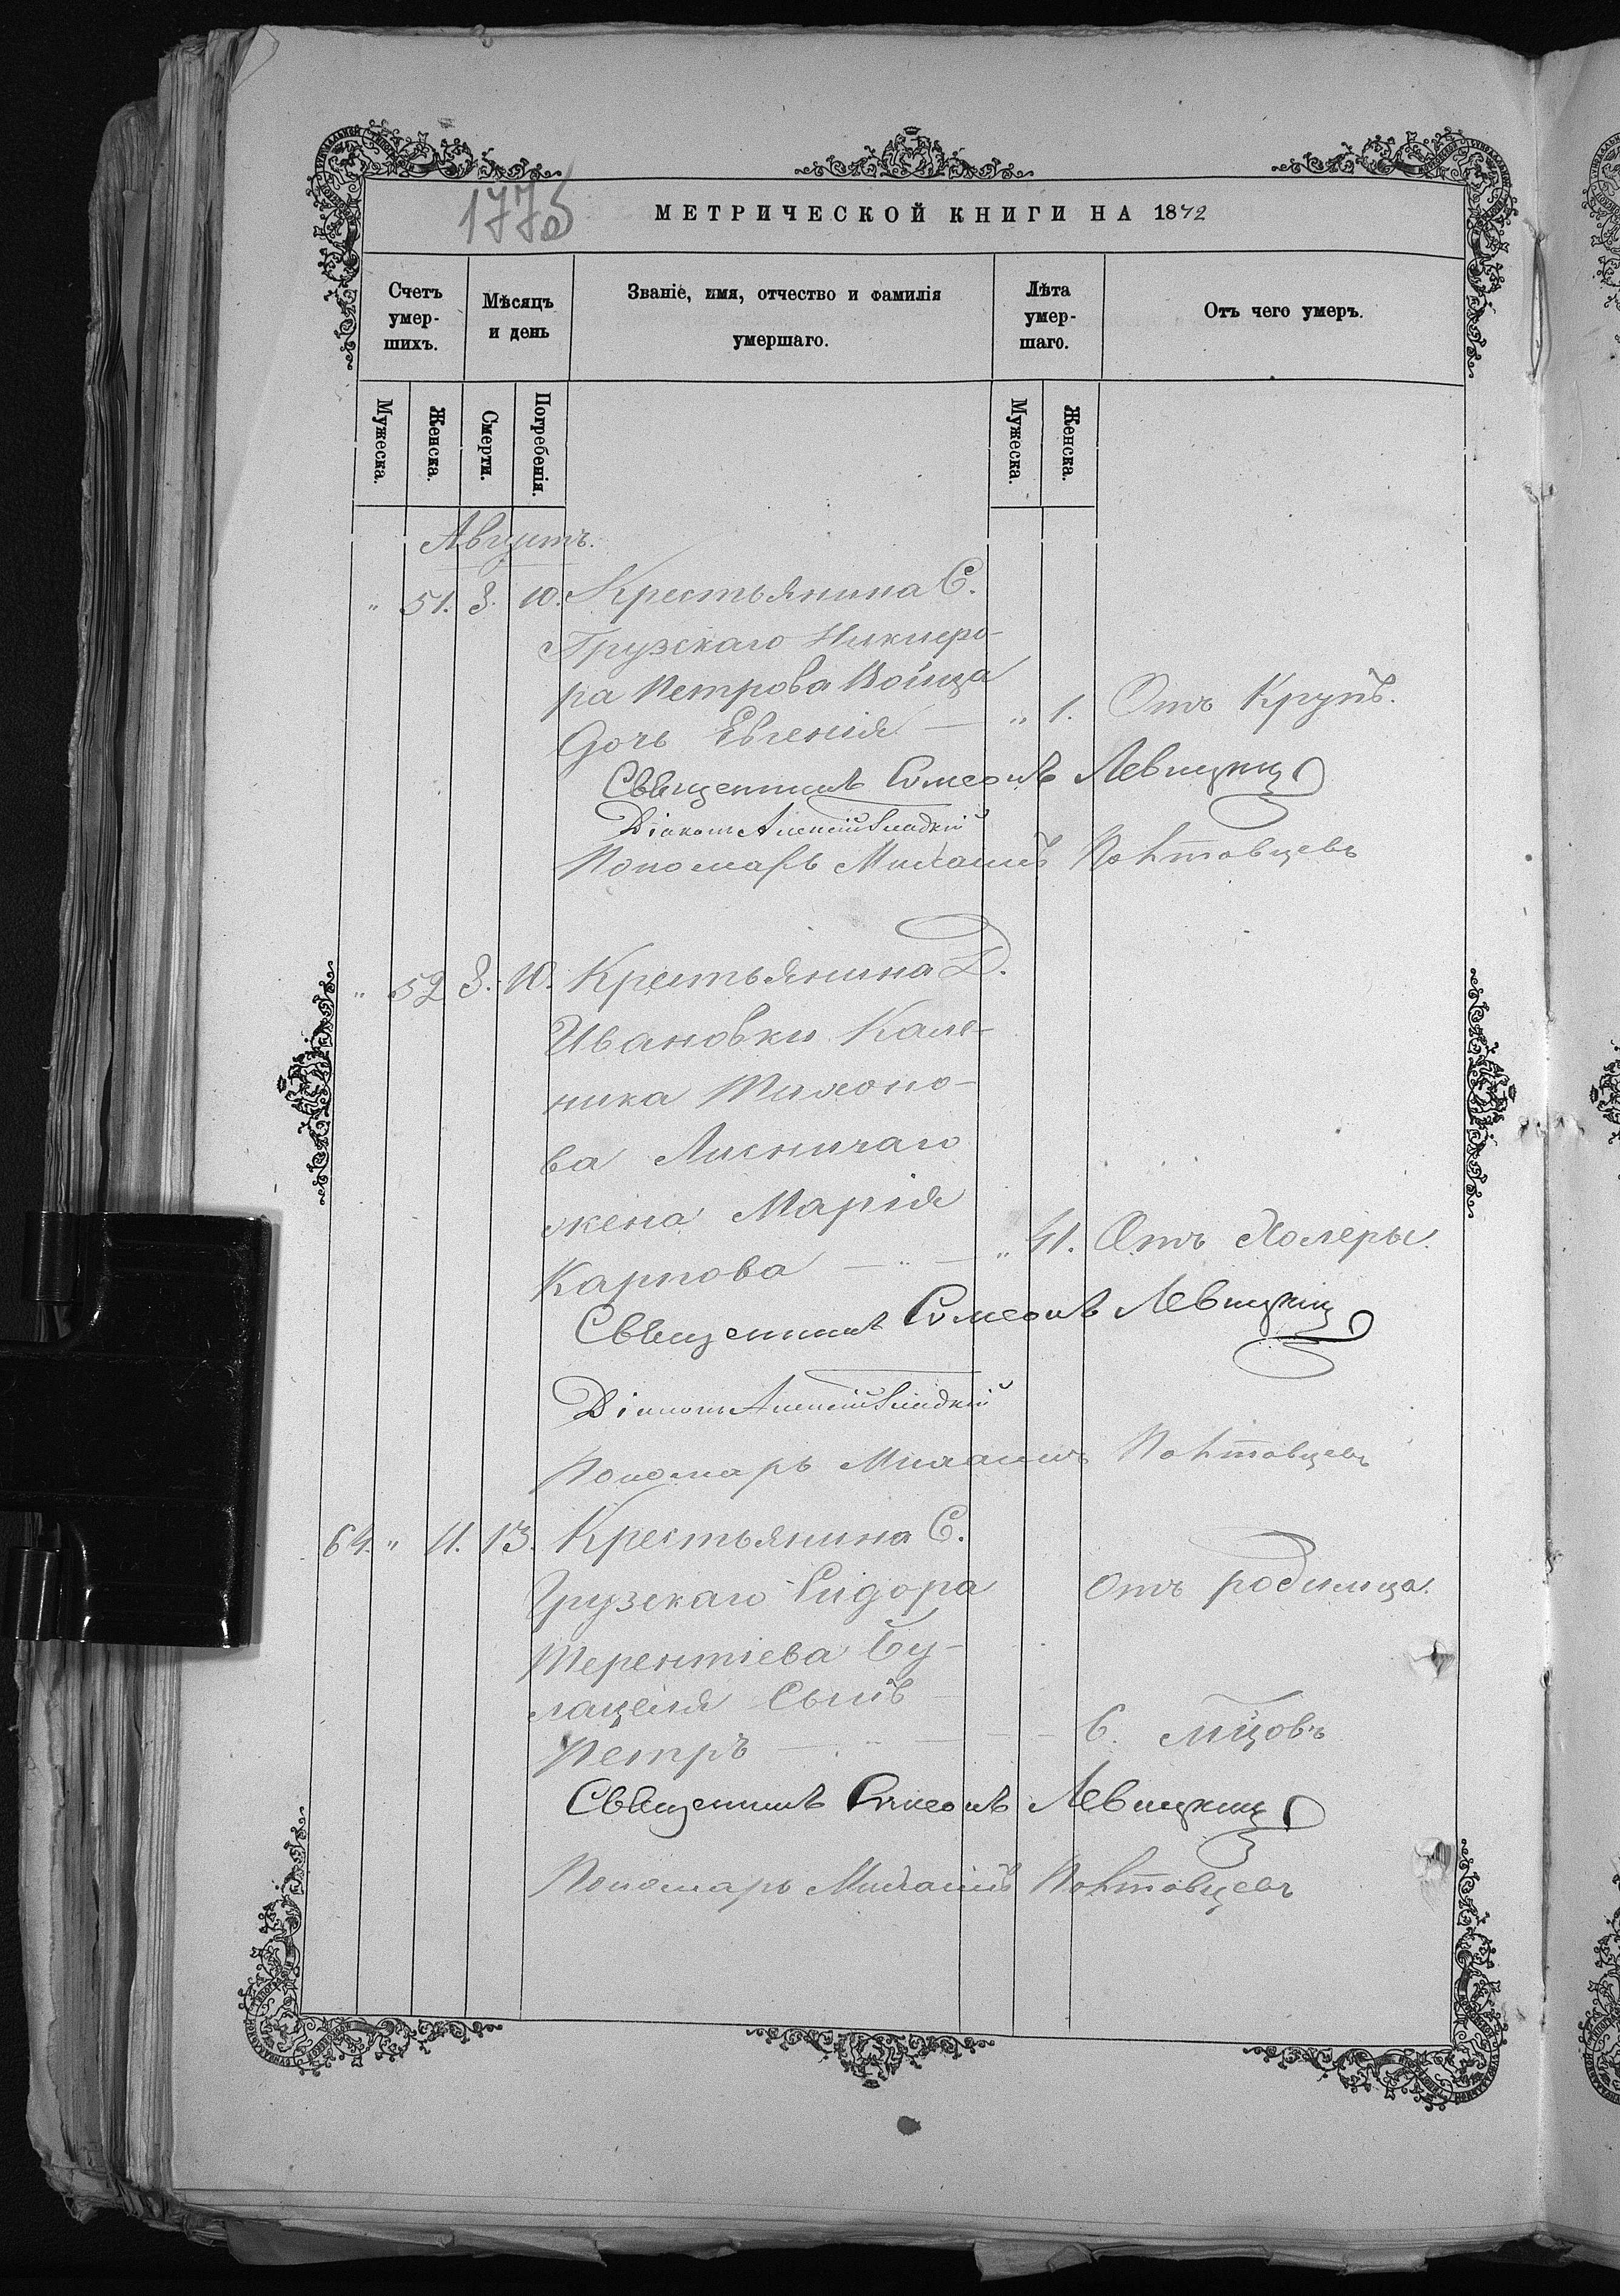 1775
МЕТРИЧЕСКОЙ КНИГИ НА 1872
Счетъ умер-шихъ.
Мѣсяцъ и день
Званіе, имя, отчество и фамилія умершаго.
Лѣта умер-шаго.
Отъ чего умеръ.
Мужеска.
Женска.
Смерти.
Погребенія.
Мужеска.
Женска.
Августъ.
" 51. 8. 10. Крестьянина С.
Грузскаго Никифо-
ра Петрова Войца
дочь Евгенія — " 1. Отъ Крупъ.
Священникъ Симеонъ Левицкій
Діаконъ Алексій
Пономарь Михаилъ
" 52 8. 10. Крестьянина Д.
Ивановки Кале-
ника Тихоно-
ва Лисничаго
жена Марія
Карпова — " — " 41. Отъ Холеры.
Священникъ Симеонъ Левицкій
Діаконъ Алексій
Пономарь Михаилъ
64. " 11. 13. Крестьянина С.
Грузскаго Сидора Отъ родимца.
Терентіева Бу-
лацеля сынъ
Петръ — " — 6. мцовъ
Священникъ Симеонъ Левицкій
Пономарь Михаилъ